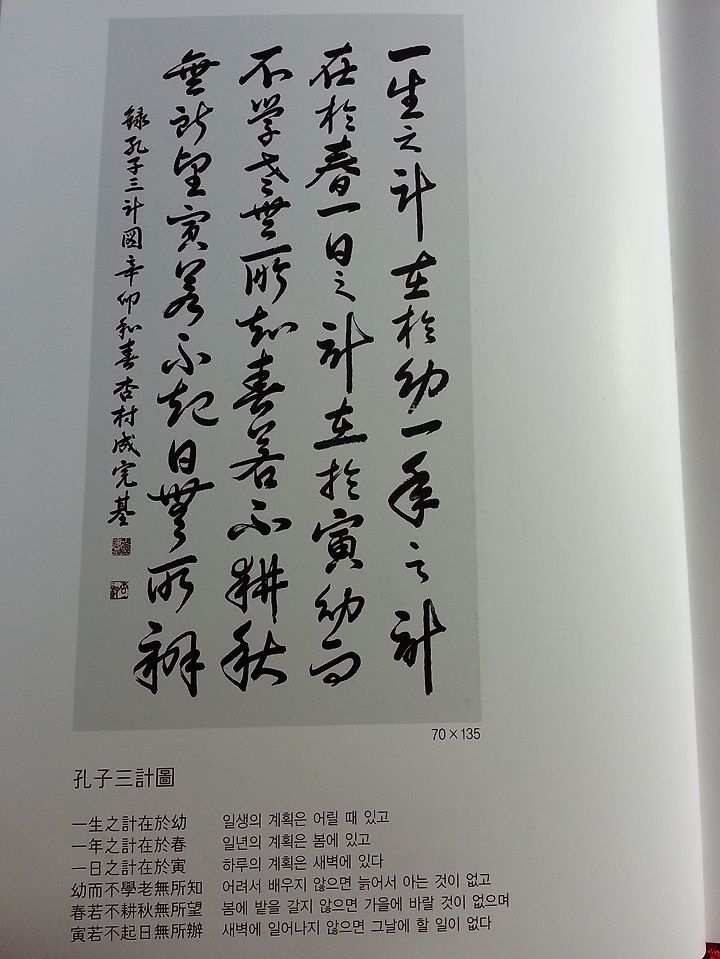 一生之計在於幼一年之計
在於春一日之計在於寅幼而
不學老無所知春若不耕秋
無所望寅若不起日無所辦
錄孔子三計圖辛卯和春杏村成完基
70×135
孔子三計圖
一生之計在於幼 일생의 계획은 어릴 때 있고
一年之計在於春 일년의 계획은 봄에 있고
一日之計在於寅 하루의 계획은 새벽에 있다
幼而不學老無所知 어려서 배우지 않으면 늙어서 아는 것이 없고
春若不耕秋無所望 봄에 밭을 갈지 않으면 가을에 바랄 것이 없으며
寅若不起日無所辦 새벽에 일어나지 않으면 그날에 할 일이 없다